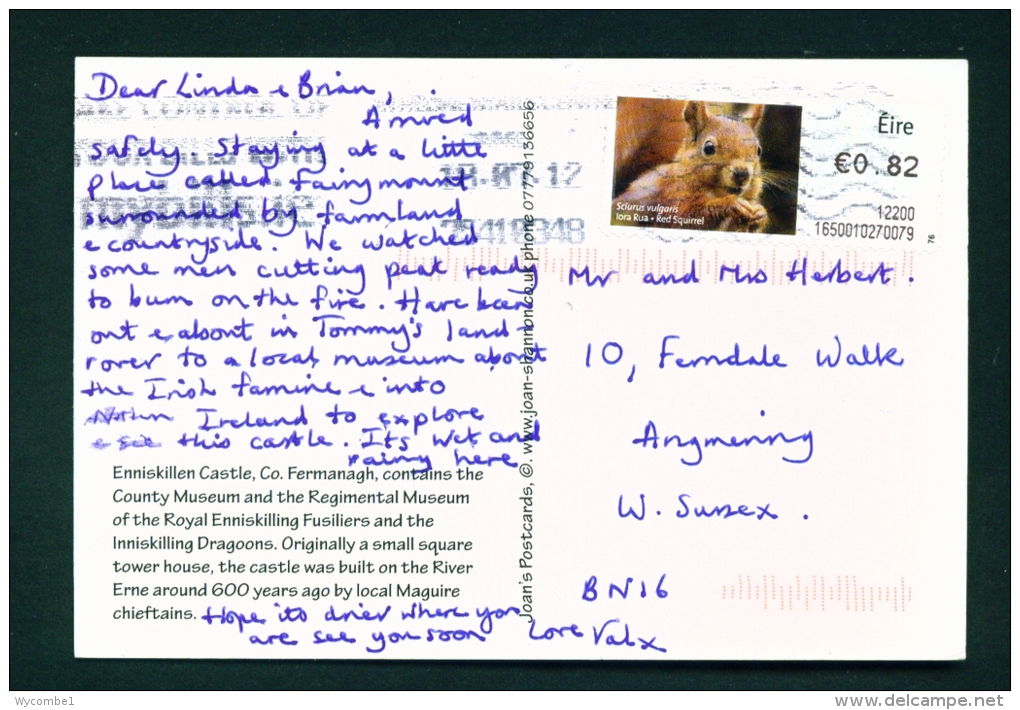 Dear Linda & Brian,
Arrived
safely. Staying at a little
place called Fairymount
surrounded by farmland
& countryside. We watched
some men cutting peat ready
to burn on the fire. Have been
out & about in Tommy's land-
rover to a local museum about
the Irish famine & into
Nothn Ireland to explore
& see this castle. Its wet and
rainy here
Enniskillen Castle, Co. Fermanagh, contains the
County Museum and the Regimental Museum
of the Royal Enniskilling Fusiliers and the
Inniskilling Dragoons. Originally a small square
tower house, the castle was built on the River
Erne around 600 years ago by local Maguire
chieftains. Hope its drier where you
are see you soon Love Val x
Joan's Postcards, ©. www.joan-shannon.co.uk phone 07779136656
Sciurus vulgaris
Iora Rua • Red Squirrel
Éire
€0.82
12200
1650010270079
76
Mr and Mrs Herbert.
10, Ferndale Walk
Angmering
W. Sussex.
BN16
Wycombe1
www.delcampe.net